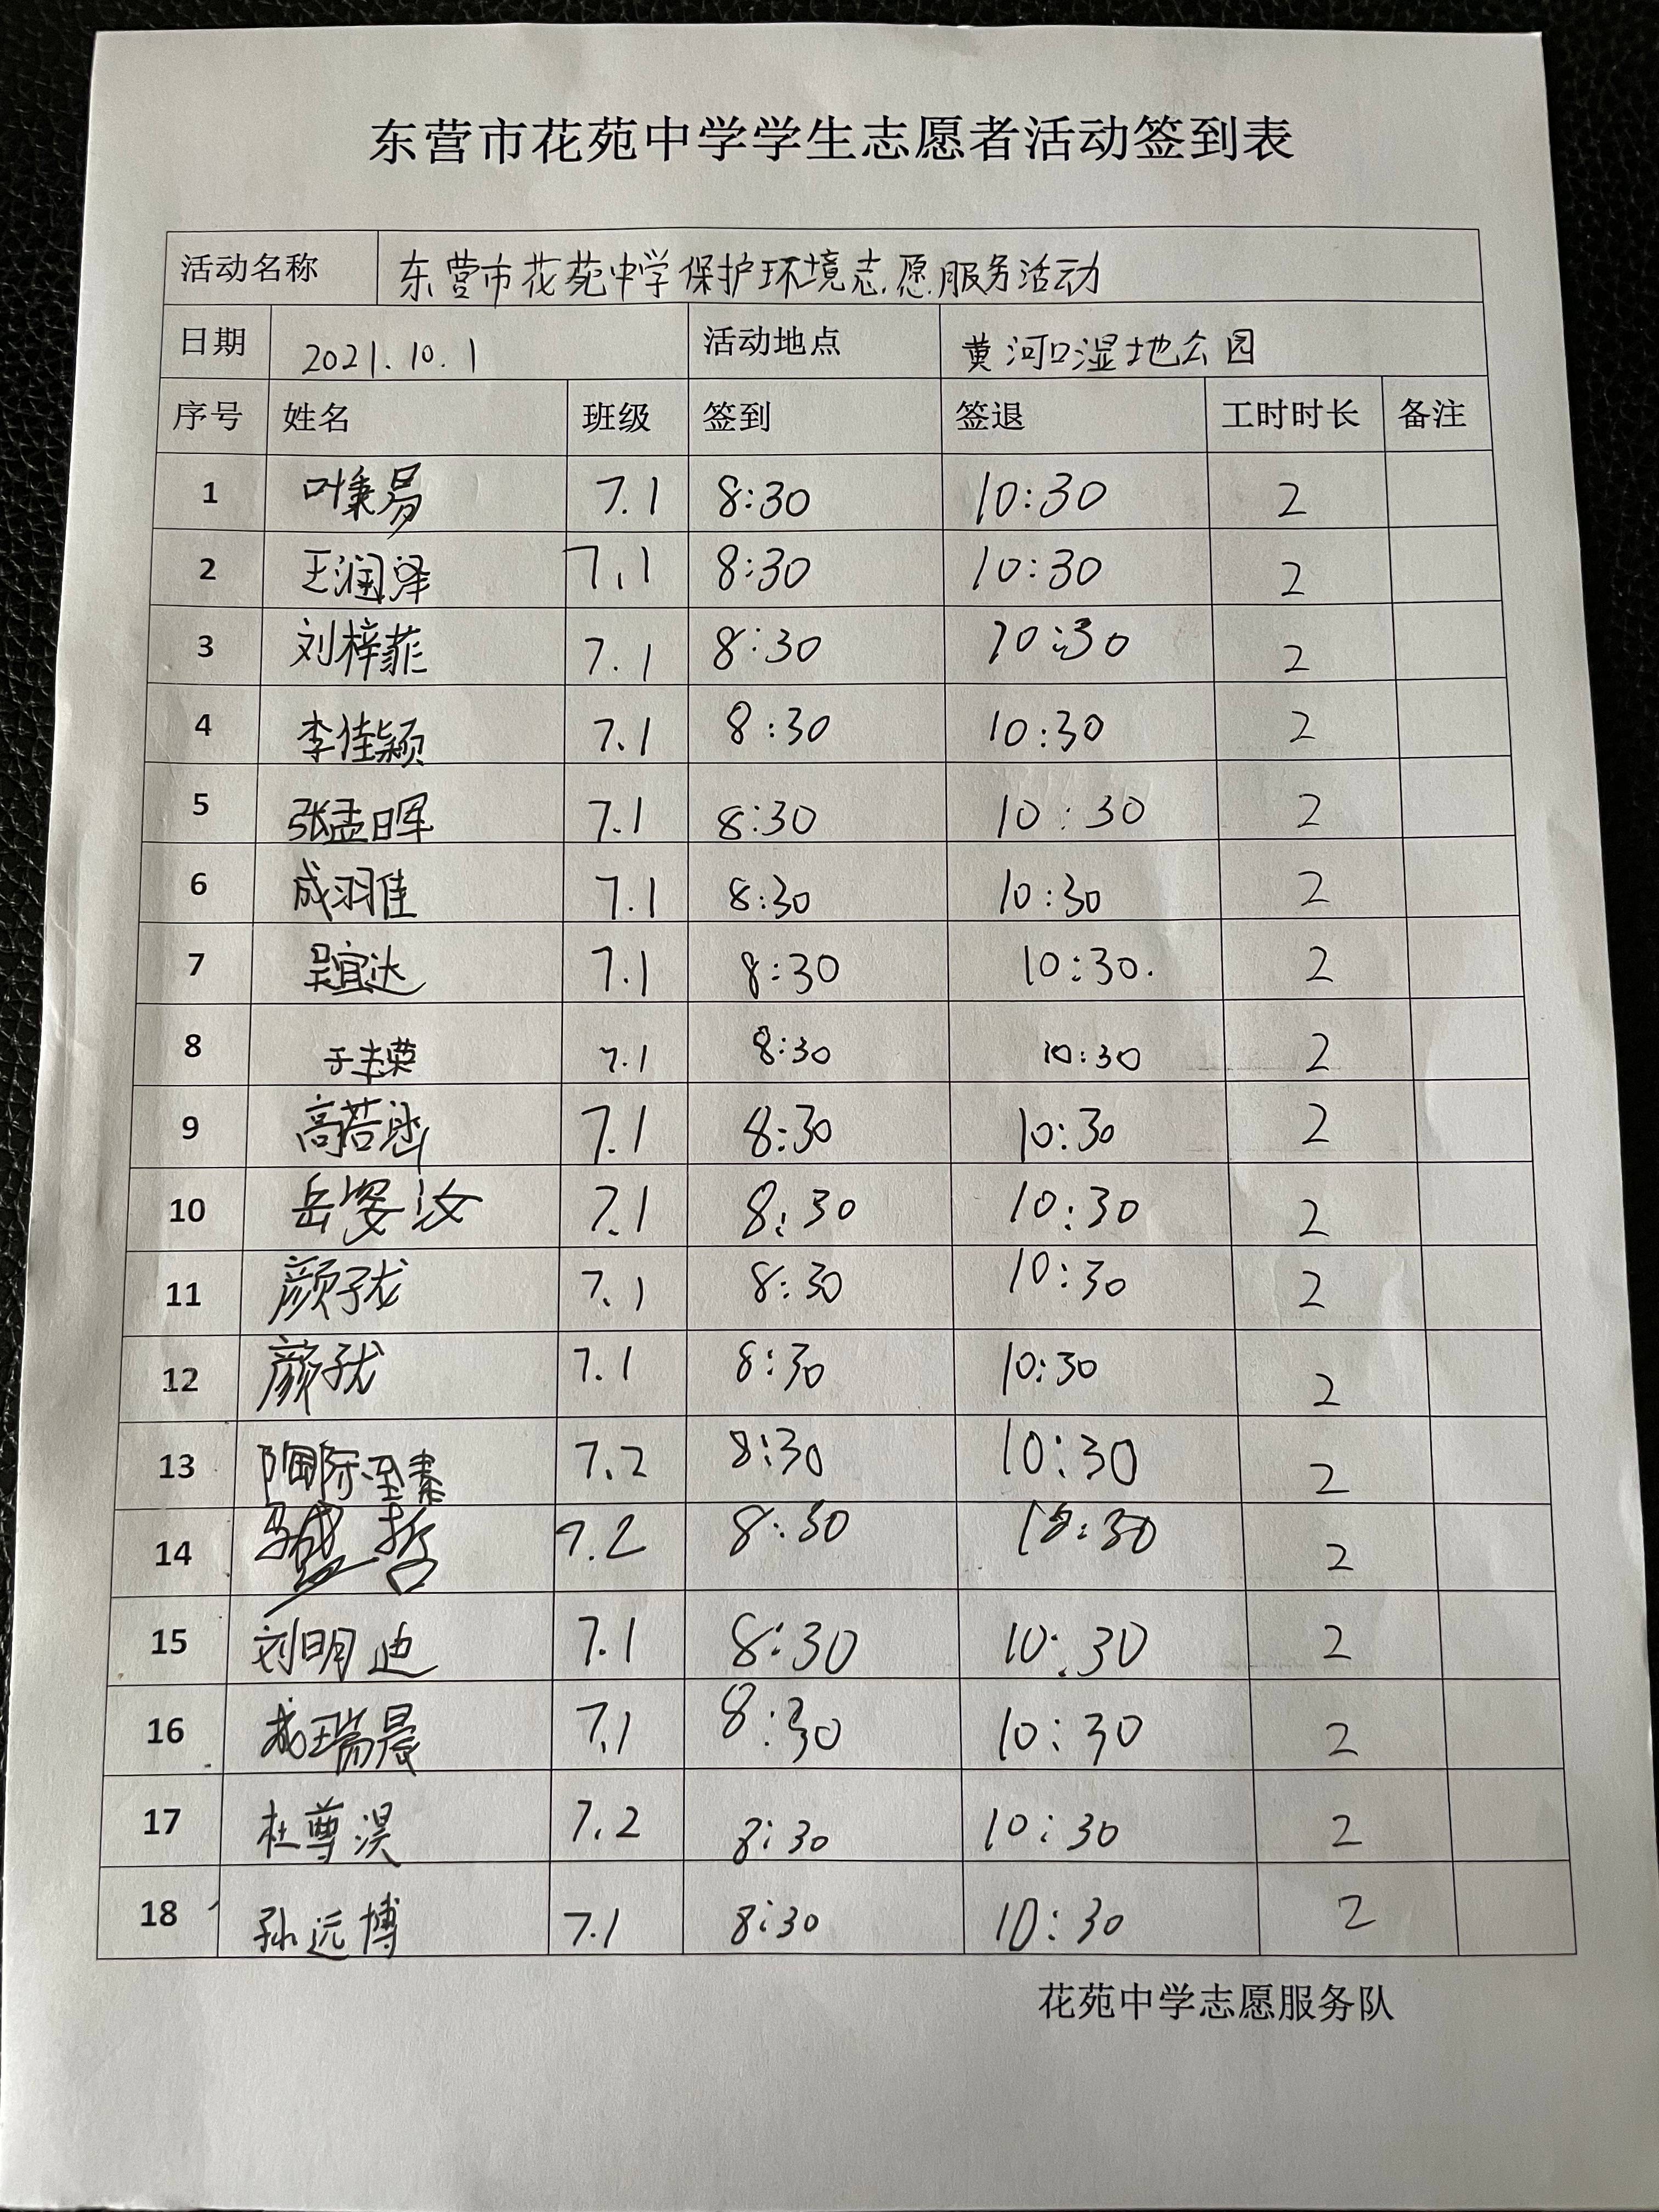 东营市花苑中学学生志愿者活动签到表
活动名称 东营市花苑中学保护环境志愿服务活动
日期 2021.10.1 活动地点 黄河口湿地公园
序号 姓名 班级 签到 签退 工时时长 备注
1 叶秉易 7.1 8:30 10:30 2
2 王润泽 7.1 8:30 10:30 2
3 刘梓菲 7.1 8:30 10:30 2
4 李佳颖 7.1 8:30 10:30 2
5 张孟晖 7.1 8:30 10:30 2
6 成羽佳 7.1 8:30 10:30 2
7 吴宜达 7.1 8:30 10:30. 2
8 7.1 8:30 10:30 2
9 高若 7.1 8:30 10:30 2
10 岳 汝 7.1 8:30 10:30 2
11 颜子 7.1 8:30 10:30 2
12 颜子 7.1 8:30 10:30 2
13 7.2 8:30 10:30 2
14 哲 7.2 8:30 10:30 2
15 刘明迪 7.1 8:30 10:30 2
16 瑞晨 7.1 8:30 10:30 2
17 杜尊淏 7.2 8:30 10:30 2
18 孙远博 7.1 8:30 10:30 2
花苑中学志愿服务队